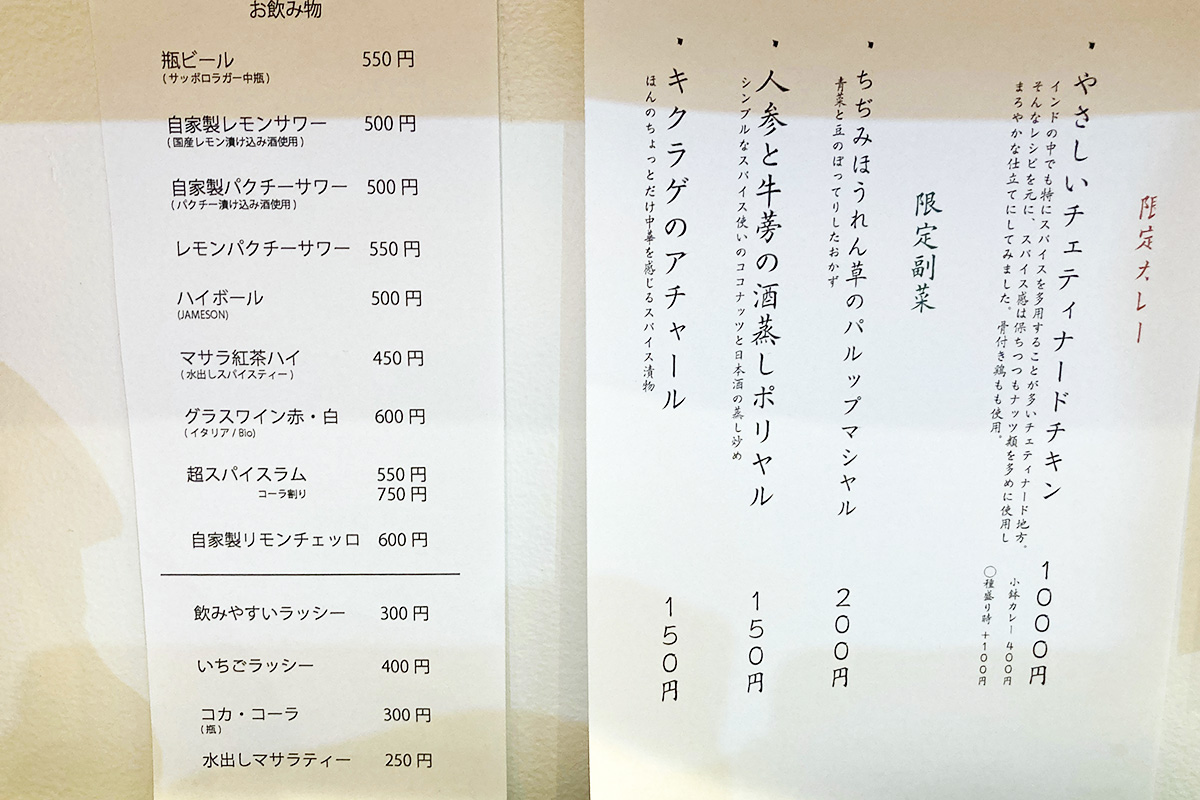 お飲み物
瓶ビール 550円
(サッポロラガー中瓶)
自家製レモンサワー 500円
(国産レモン漬け込み酒使用)
自家製パクチーサワー 500円
(パクチー漬け込み酒使用)
レモンパクチーサワー 550円
ハイボール 500円
(JAMESON)
マサラ紅茶ハイ 450円
(水出しスパイスティー)
グラスワイン赤・白 600円
(イタリア / Bio)
超スパイスラム 550円
コーラ割り 750円
自家製リモンチェッロ 600円
飲みやすいラッシー 300円
いちごラッシー 400円
コカ・コーラ 300円
(瓶)
水出しマサラティー 250円
限定カレー
・やさしいチェティナードチキン 1000円
インドの中でも特にスパイスを多用することが多いチェティナード地方。
そんなレシピを元に、スパイス感は保ちつつもナッツ類を多めに使用し
まろやかな仕立てにしてみました。骨付き鶏もも使用。
小鉢カレー 400円
○種盛り時 +100円
限定副菜
・ちぢみほうれん草のパルップマシヤル 200円
青菜と豆のぽってりしたおかず
・人参と牛蒡の酒蒸しポリヤル 150円
シンプルなスパイス使いのココナッツと日本酒の蒸し炒め
・キクラゲのアチャール 150円
ほんのちょっとだけ中華を感じるスパイス漬物